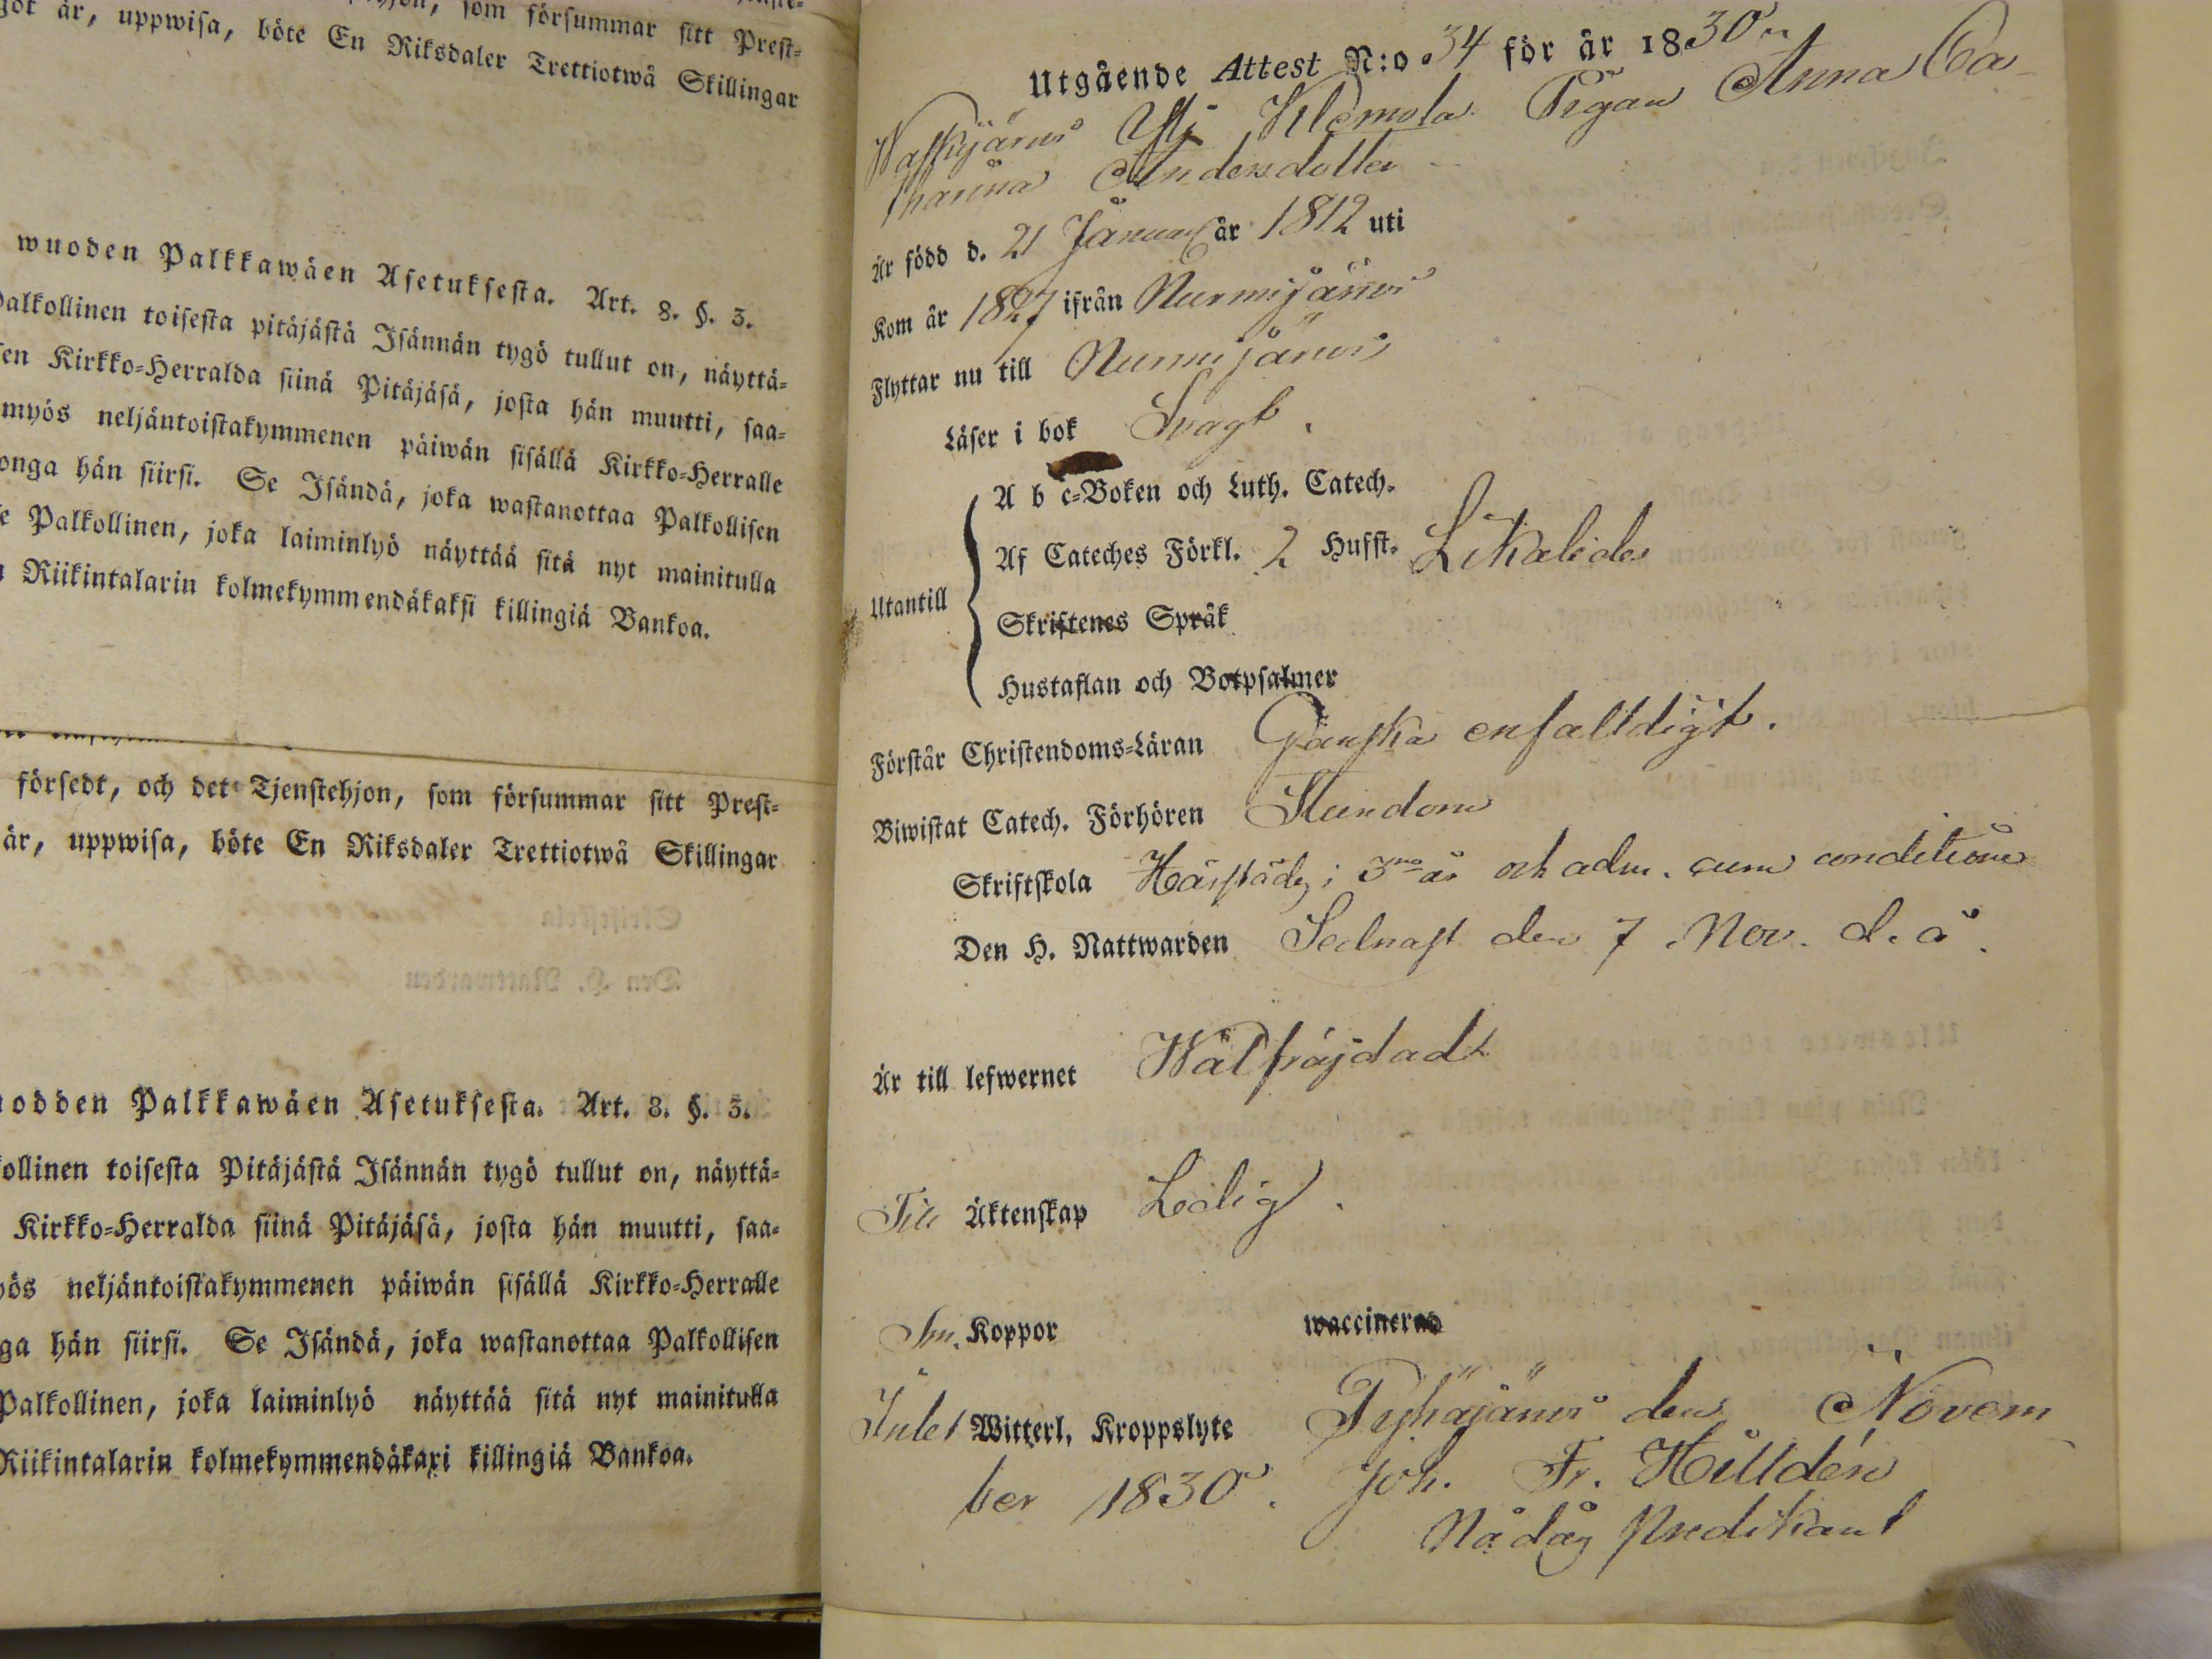 hjon, som försummar sitt Prest=
got år, uppwisa, böte En Riksdaler Trettiotwå Skillingar
wuoden Palkkawäen Asetuksesta. Art. 8. §. 3.
Palkollinen toisesta pitäjästä Isännän tygö tullut on, näyttä=
sen Kirkko=Herralda siinä Pitäjäsä, josta hän muutti, saa=
myös neljäntoistakymmenen päiwän sisällä Kirkko=Herralle
onga hän siirsi. Se Isändä, joka wastanottaa Palkollisen
e Palkollinen, joka laiminlyö näyttää sitä nyt mainitulla
n Riikintalarin kolmekymmendäkaksi killingiä Bankoa.
försedt, och det Tjenstehjon, som försummar sitt Prest=
år, uppwisa, böte En Riksdaler Trettiotwå Skillingar
uodden Palkkawäen Asetuksesta. Art. 8. §. 3.
kollinen toisesta Pitäjästä Isännän tygö tullut on, näyttä=
Kirkko=Herralda siinä Pitäjäsä, josta hän muutti, saa=
yös neljäntoistakymmenen päiwän sisällä Kirkko=Herralle
ga hän siirsi. Se Isändä, joka wastanottaa Palkollisen
Palkollinen, joka laiminlyö näyttää sitä nyt mainitulla
Riikintalarin kolmekymmendäkaxi killingiä Bankoa.
Utgående Attest N:o 34 för år 1830
Waskijärvi Klemola Pigan Anna Ca
tharina Andersdotter
Är född d. 21 Januarj år 1812 uti
Kom år 1827 ifrån Nurmijärvi
Flyttar nu till Nurmijärvi
Läser i bok Svagt.
A b c=Boken och Luth. Catech.
Af Cateches Förkl. 2 Hufst. Likaledes
Utantill
Skriftenes Språk
Hustaflan och Botpsalmer
Förstår Christendoms=Läran Ganska enfaldigt.
Biwistat Catech. Förhören Stundom
Skriftskola Härstädes i 3ne år och adm. cum conditione
Den H. Nattwarden Sednast den 7 Nov. d. å.
Är till lefwernet Wälfräjdad
Till Äktenskap Ledig.
Koppor waccinerad
Intet Witterl. Kroppslyte Pyhäjärvi den Novem
ber 1830. Joh. Fr. Hilldén
Nådårs Predikant